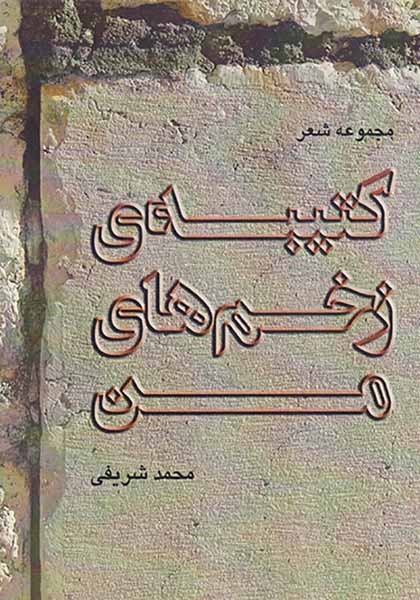 مجموعه شعر
کتیبه‌ی
زخم‌های
من
محمد شریفی